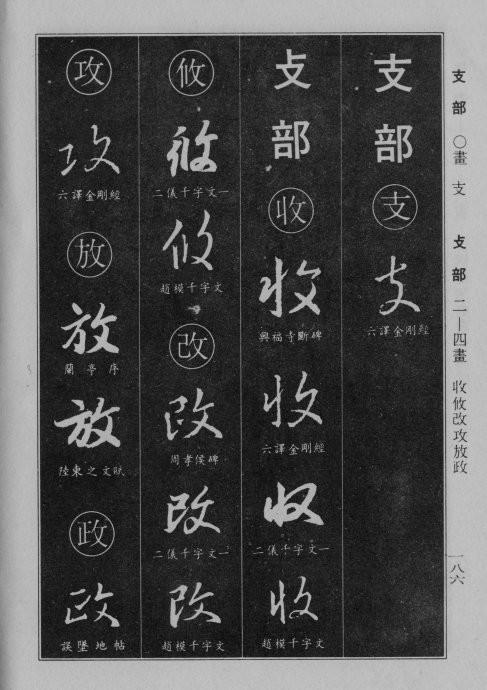 支部 〇畫 支 攴部 二—四畫 收攸改攻放政
一八六
支部
支
支
六譯金剛經
攴部
收
收
興福寺斷碑
收
六譯金剛經
收
二儀千字文一
收
趙模千字文
攸
攸
二儀千字文一
攸
趙模千字文
改
改
周孝侯碑
改
二儀千字文一
改
趙模千字文
攻
攻
六譯金剛經
放
放
蘭亭序
放
陸東之文賦
政
政
誤墜地帖